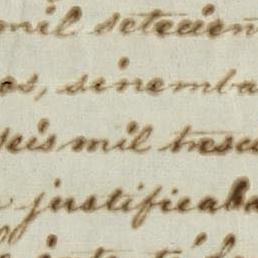 mil setecien
os, sinemba
seis mil tresci
justificaba